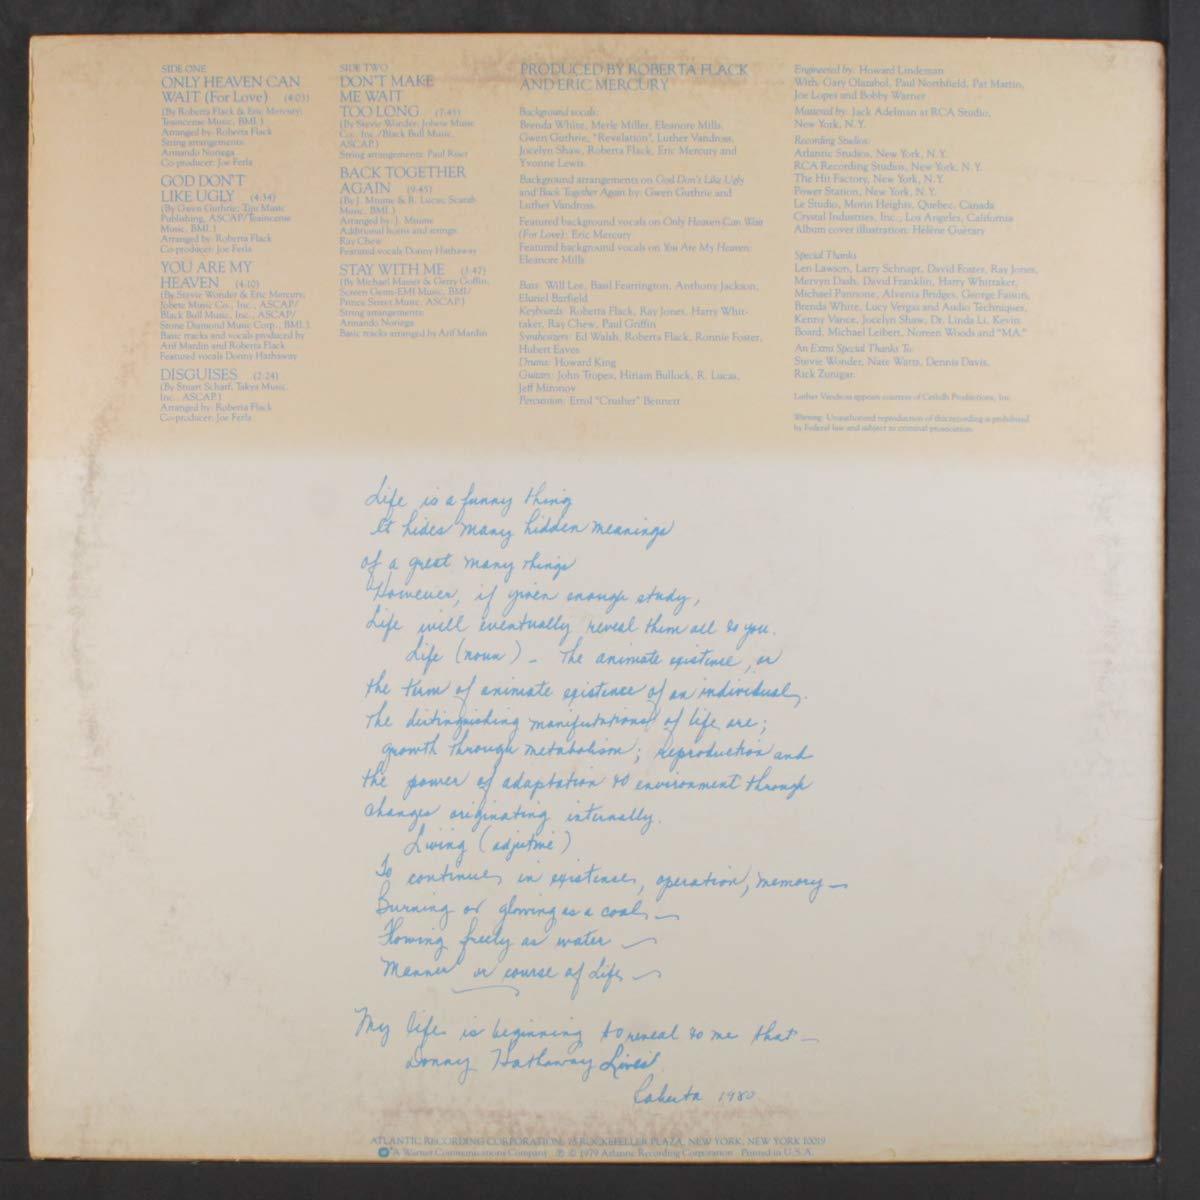 SIDE ONE
ONLY HEAVEN CAN
WAIT (For Love) (4:03)
(By Roberta Flack & Eric Mercury;
Teainsense Music, BMI.)
Arranged by: Roberta Flack
String arrangements:
Armando Noriega
Co-producer: Joe Ferla
GOD DON'T
LIKE UGLY (4:34)
(By Gwen Guthrie; Tjm Music
Publishing, ASCAP/Teainsense
Music, BMI.)
Arranged by: Roberta Flack
Co-producer: Joe Ferla
YOU ARE MY
HEAVEN (4:10)
(By Stevie Wonder & Eric Mercury;
Jobete Music Co., Inc., ASCAP/
Black Bull Music, Inc., ASCAP/
Stone Diamond Music Corp., BMI.)
Basic tracks and vocals produced by
Arif Mardin and Roberta Flack
Featured vocals Donny Hathaway
DISGUISES (2:24)
(By Stuart Scharf, Takya Music,
Inc., ASCAP.)
Arranged by: Roberta Flack
Co-producer: Joe Ferla
SIDE TWO
DON'T MAKE
ME WAIT
TOO LONG (7:45)
(By Stevie Wonder; Jobete Music
Co., Inc./Black Bull Music,
ASCAP.)
String arrangements: Paul Riser
BACK TOGETHER
AGAIN (9:45)
(By J. Mtume & R. Lucas; Scarab
Music, BMI.)
Arranged by: J. Mtume
Additional horns and strings:
Ray Chew
Featured vocals Donny Hathaway
STAY WITH ME (3:47)
(By Michael Masser & Gerry Goffin,
Screen Gems-EMI Music, BMI/
Prince Street Music, ASCAP.)
String arrangements:
Armando Noriega
Basic tracks arranged by Arif Mardin
PRODUCED BY ROBERTA FLACK
AND ERIC MERCURY
Background vocals:
Brenda White, Merle Miller, Eleanore Mills,
Gwen Guthrie, "Revelation", Luther Vandross,
Jocelyn Shaw, Roberta Flack, Eric Mercury and
Yvonne Lewis.
Background arrangements on God Don't Like Ugly
and Back Together Again by: Gwen Guthrie and
Luther Vandross.
Featured background vocals on Only Heaven Can Wait
(For Love): Eric Mercury
Featured background vocals on You Are My Heaven:
Eleanore Mills
Bass: Will Lee, Basil Fearrington, Anthony Jackson,
Eluriel Barfield
Keyboards: Roberta Flack, Ray Jones, Harry Whit-
taker, Ray Chew, Paul Griffin
Synthesizers: Ed Walsh, Roberta Flack, Ronnie Foster,
Hubert Eaves
Drums: Howard King
Guitars: John Tropea, Hiriam Bullock, R. Lucas,
Jeff Mironov
Percussion: Errol "Crusher" Bennett
Engineered by: Howard Lindeman
With: Gary Olazabol, Paul Northfield, Pat Martin,
Joe Lopes and Bobby Warner
Mastered by: Jack Adelman at RCA Studio,
New York, N.Y.
Recording Studios:
Atlantic Studios, New York, N.Y.
RCA Recording Studios, New York, N.Y.
The Hit Factory, New York, N.Y.
Power Station, New York, N.Y.
Le Studio, Morin Heights, Quebec, Canada
Crystal Industries, Inc., Los Angeles, California
Album cover illustration: Hélène Guétary
Special Thanks
Len Lawson, Larry Schnapt, David Foster, Ray Jones,
Mervyn Dash, David Franklin, Harry Whittaker,
Michael Pannone, Alvenia Bridges, George Faison,
Brenda White, Lucy Vergas and Audio Techniques,
Kenny Vance, Jocelyn Shaw, Dr. Linda Li, Kevin
Board, Michael Leibert, Noreen Woods and "MA."
An Extra Special Thanks To:
Stevie Wonder, Nate Watts, Dennis Davis,
Rick Zunigar.
Luther Vandross appears courtesy of Productions, Inc.
Warning: Unauthorized reproduction of this recording is prohibited
by Federal law and subject to criminal prosecution.
Life is a funny thing
It hides many hidden meanings
of a great many things
However, if given enough study,
Life will eventually reveal them all to you.
Life (noun) - The animate existence, or
the term of animate existence of an individual.
The distinguishing manifestations of life are;
growth through metabolism; reproduction and
the power of adaptation to environment through
changes originating internally.
Living (adjective)
To continue, in existence, operation, memory —
Burning or glowing as a coal —
Flowing freely as water —
Manner or course of Life —
My life is beginning to reveal to me that —
Donny Hathaway Lives!
Roberta 1980
ATLANTIC RECORDING CORPORATION, 75 ROCKEFELLER PLAZA, NEW YORK, NEW YORK 10019
A Warner Communications Company ℗ © 1979 Atlantic Recording Corporation Printed in U.S.A.